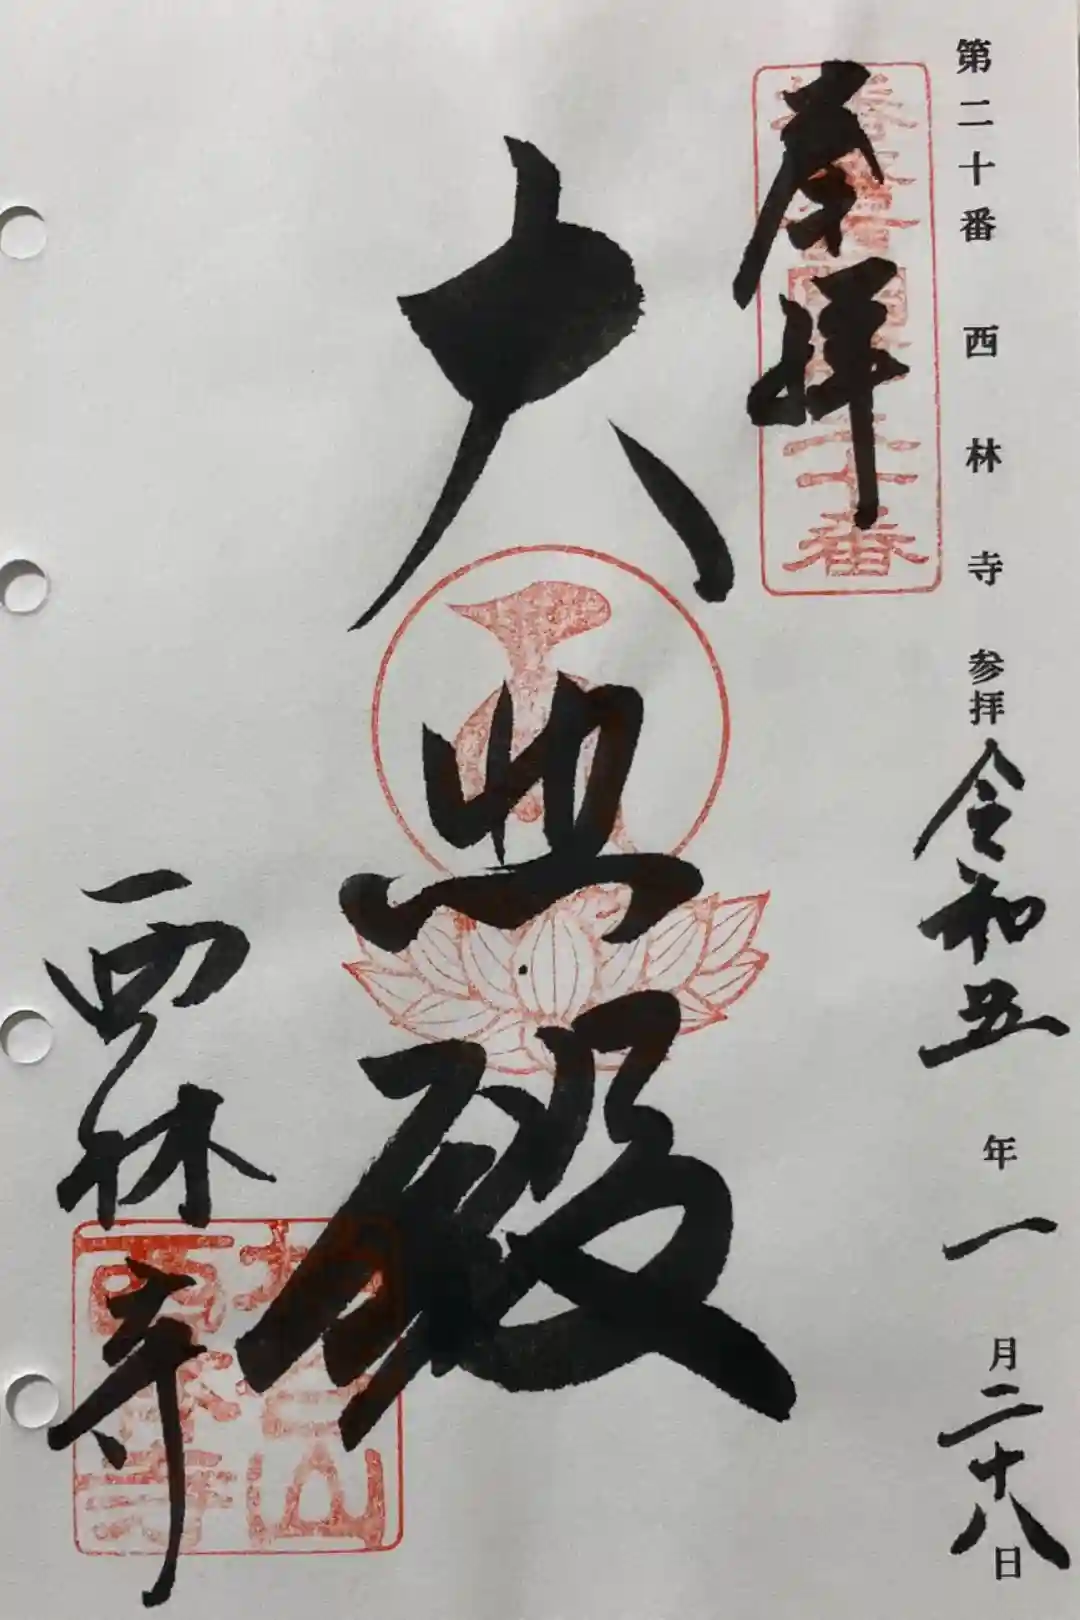 第二十番 西林寺 参拝 令和五年一月二十八日
奉拝
二十番
大悲殿
西林寺
西林寺